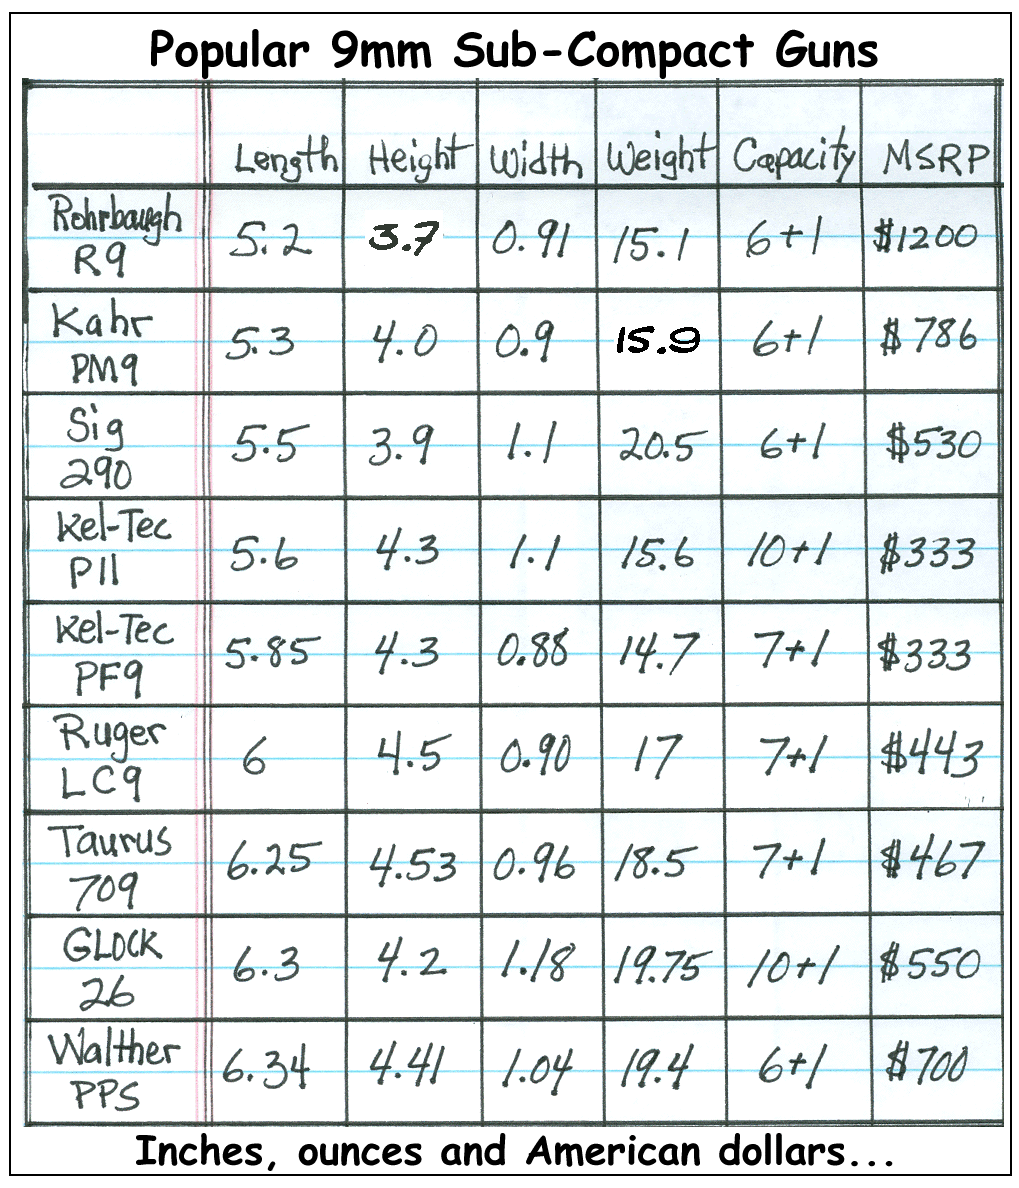 Popular 9mm Sub-Compact Guns
Length Height Width Weight Capacity MSRP
Rohrbaugh
R9 5.2 3.7 0.91 15.1 6+1 $1200
Kahr
PM9 5.3 4.0 0.9 15.9 6+1 $786
Sig
290 5.5 3.9 1.1 20.5 6+1 $530
Kel-Tec
P11 5.6 4.3 1.1 15.6 10+1 $333
Kel-Tec
PF9 5.85 4.3 0.88 14.7 7+1 $333
Ruger
LC9 6 4.5 0.90 17 7+1 $443
Taurus
709 6.25 4.53 0.96 18.5 7+1 $467
GLOCK
26 6.3 4.2 1.18 19.75 10+1 $550
Walther
PPS 6.34 4.41 1.04 19.4 6+1 $700
Inches, ounces and American dollars...